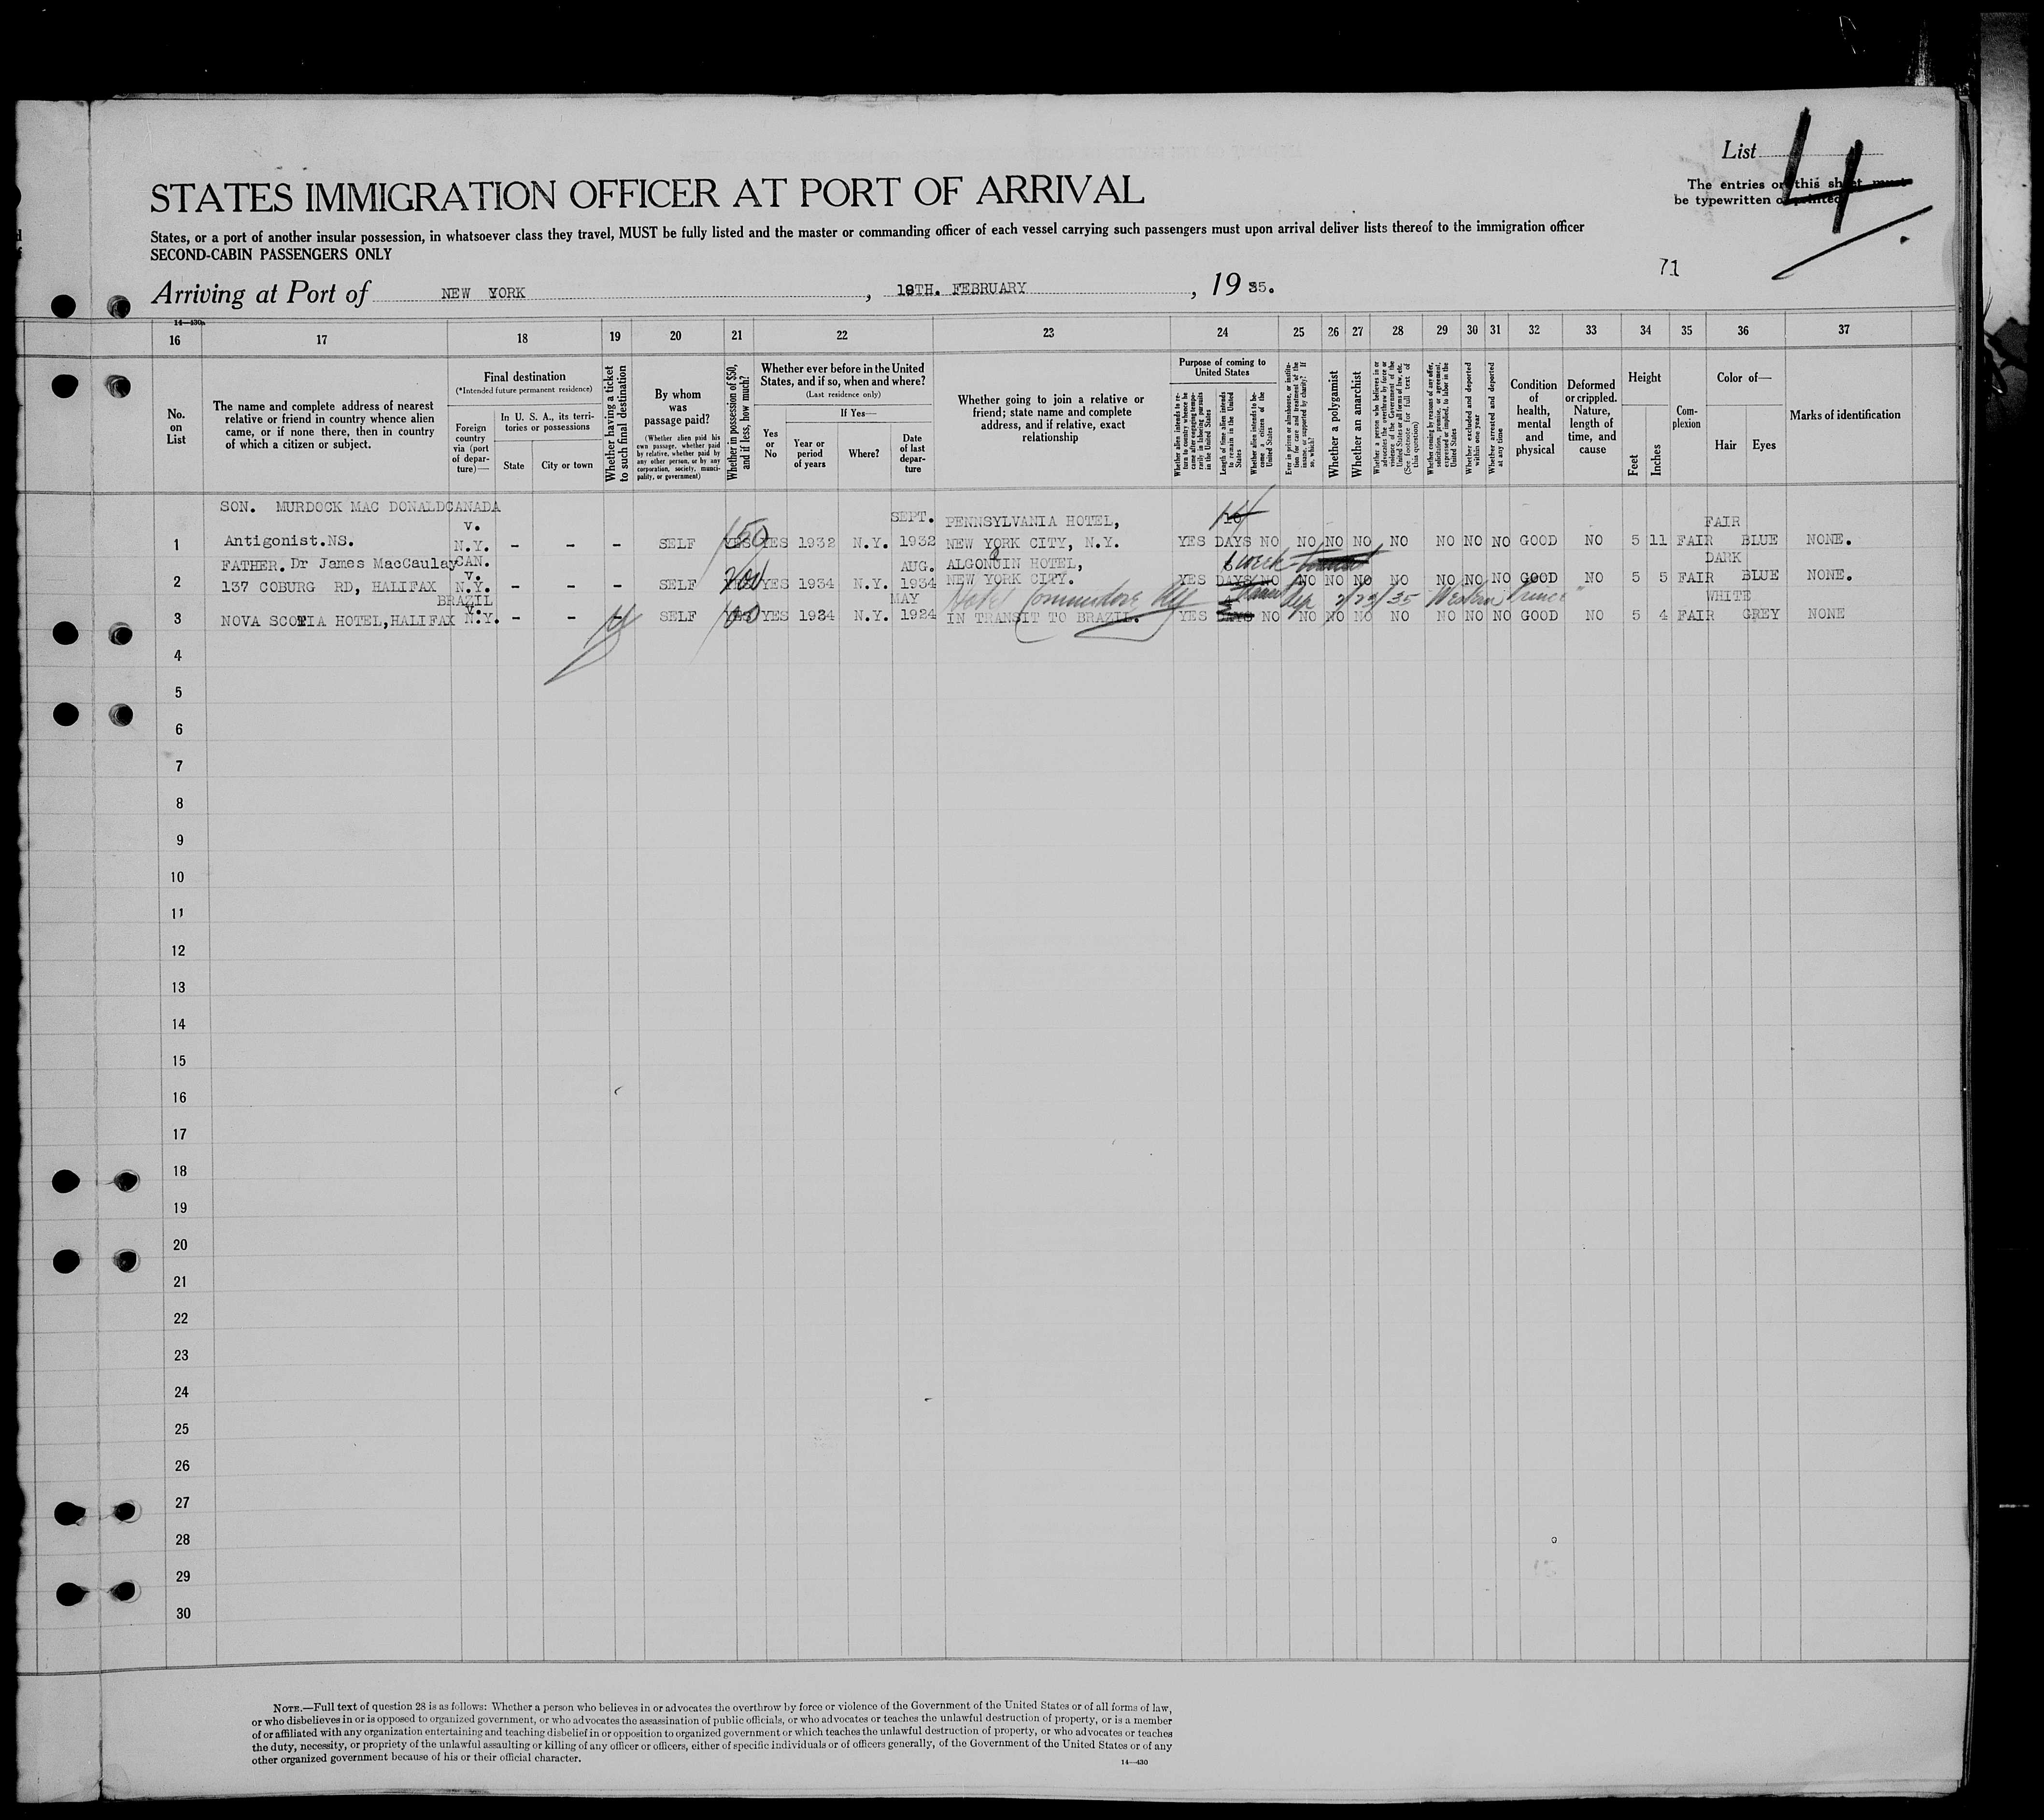 List 4
The entries on this sheet must
be typewritten or printed
STATES IMMIGRATION OFFICER AT PORT OF ARRIVAL
States, or a port of another insular possession, in whatsoever class they travel, MUST be fully listed and the master or commanding officer of each vessel carrying such passengers must upon arrival deliver lists thereof to the immigration officer
SECOND-CABIN PASSENGERS ONLY
71
Arriving at Port of NEW YORK, 18TH. FEBRUARY, 1935.
14—430a
16 17 18 19 20 21 22 23 24 25 26 27 28 29 30 31 32 33 34 35 36 37
No. on List
The name and complete address of nearest relative or friend in country whence alien came, or if none there, then in country of which a citizen or subject.
Final destination
(*Intended future permanent residence)
Foreign country via (port of departure)—
In U. S. A., its territories or possessions
State
City or town
Whether having a ticket to such final destination
By whom was passage paid?
(Whether alien paid his own passage, whether paid by relative, whether paid by any other person, or by any corporation, society, municipality, or government)
Whether in possession of $50, and if less, how much?
Whether ever before in the United States, and if so, when and where?
(Last residence only)
Yes or No
If Yes—
Year or period of years
Where?
Date of last departure
Whether going to join a relative or friend; state name and complete address, and if relative, exact relationship
Purpose of coming to United States
Whether alien intends to return to country whence he came after engaging temporarily in laboring pursuits in the United States
Length of time alien intends to remain in the United States
Whether alien intends to become a citizen of the United States
Ever in prison or almshouse, or institution for care and treatment of the insane, or supported by charity? If so, which?
Whether a polygamist
Whether an anarchist
Whether a person who believes in or advocates the overthrow by force or violence of the Government of the United States or all forms of law, etc. (See footnote for full text of this question)
Whether coming by reasons of any offer, solicitation, promise, or agreement, expressed or implied, to labor in the United States
Whether excluded and deported within one year
Whether arrested and deported at any time
Condition of health, mental and physical
Deformed or crippled. Nature, length of time, and cause
Height
Feet
Inches
Complexion
Color of—
Hair
Eyes
Marks of identification
SON. MURDOCK MAC DONALD CANADA
v. SEPT. PENNSYLVANIA HOTEL, 14 FAIR
1 Antigonist.NS. N.Y. - - - SELF YES 50 YES 1932 N.Y. 1932 NEW YORK CITY, N.Y. YES DAYS NO NO NO NO NO NO NO NO GOOD NO 5 11 FAIR BLUE NONE.
FATHER. Dr James MacCaulay CAN. AUG. ALGONQUIN HOTEL, 1 week DARK
v.
2 137 COBURG RD, HALIFAX N.Y. - - - SELF 200 YES 1934 N.Y. 1934 NEW YORK CITY. YES DAYS NO NO NO NO NO NO NO NO GOOD NO 5 5 FAIR BLUE NONE.
BRAZIL v. MAY Hotel Commodore 2/23/35 Western Prince" WHITE
3 NOVA SCOTIA HOTEL, HALIFAX N.Y. - - - SELF YES YES 1934 N.Y. 1924 IN TRANSIT TO BRAZIL. YES DAYS NO NO NO NO NO NO NO NO GOOD NO 5 4 FAIR GREY NONE
4
5
6
7
8
9
10
11
12
13
14
15
16
17
18
19
20
21
22
23
24
25
26
27
28
29
30
NOTE.—Full text of question 28 is as follows: Whether a person who believes in or advocates the overthrow by force or violence of the Government of the United States or of all forms of law,
or who disbelieves in or is opposed to organized government, or who advocates the assassination of public officials, or who advocates or teaches the unlawful destruction of property, or is a member
of or affiliated with any organization entertaining and teaching disbelief in or opposition to organized government or which teaches the unlawful destruction of property, or who advocates or teaches
the duty, necessity, or propriety of the unlawful assaulting or killing of any officer or officers, either of specific individuals or of officers generally, of the Government of the United States or of any
other organized government because of his or their official character.
14—430